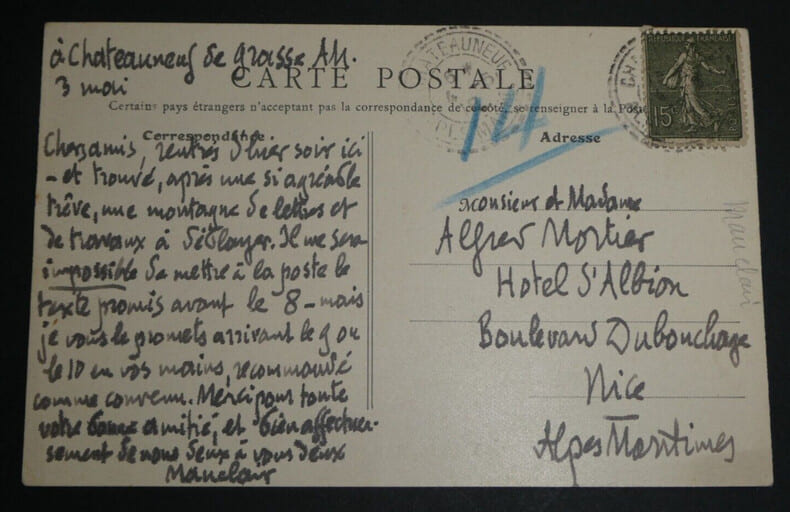 à Chateauneuf de grasse AM.
3 mai
CARTE POSTALE
Certains pays étrangers n'acceptent pas la correspondance de ce côté, se renseigner à la Poste
Correspondance
Chersamis, rentrés d'hier soir ici
- et trouvé, après une si agréable
trêve, une montagne de lettres et
de travaux à déblayer. Il me sera
impossible de mettre à la poste le
texte promis avant le 8 - mais
je vous le promets arrivant le 9 ou
le 10 en vos mains, recommandé
comme convenu. Merci pour toute
votre bonne amitié, et bien affectueu-
sement de nous deux à vous deux
Mauclair
CHATEAUNEUF
14
RÉPUBLIQUE FRANÇAISE
15c
Adresse
Monsieur et Madame
Alfred Mortier
Hotel d'Albion
Boulevard Dubouchage
Nice
Alpes Maritimes
Mauclair